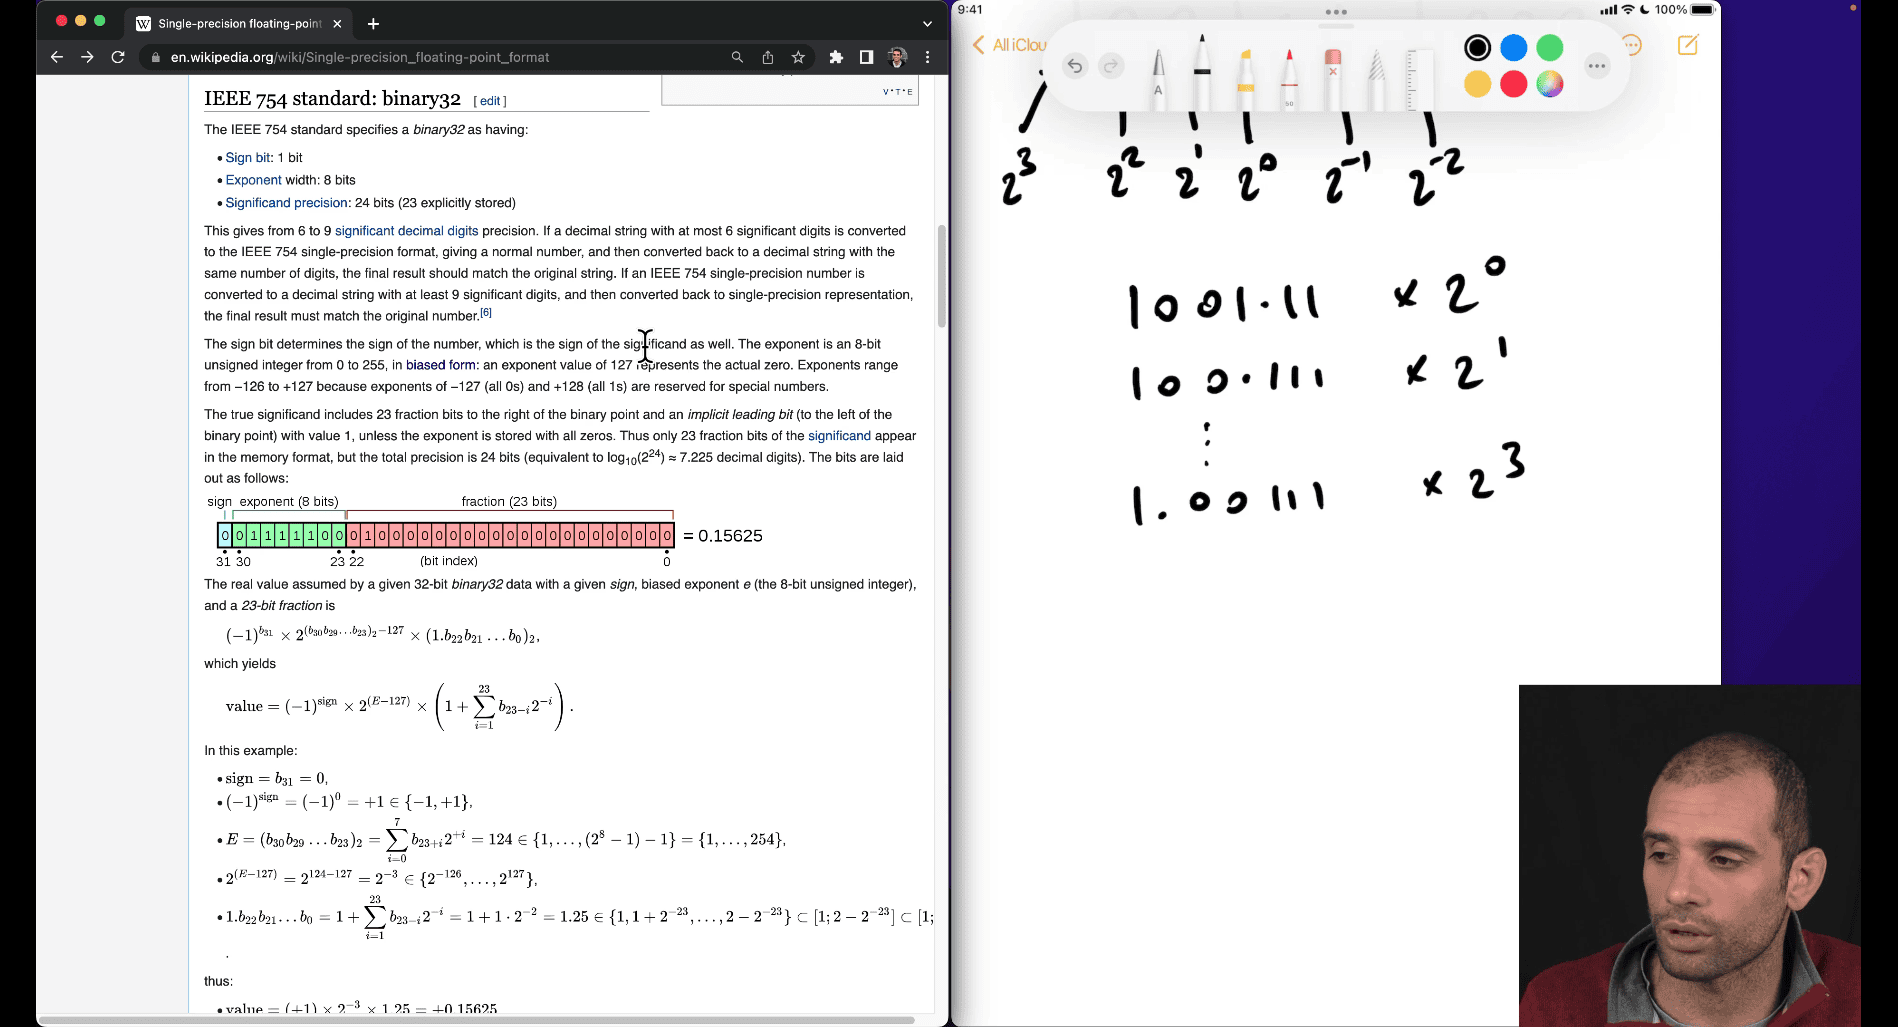 Single-precision floating-point
en.wikipedia.org/wiki/Single-precision_floating-point_format
V·T·E
IEEE 754 standard: binary32 [ edit ]
The IEEE 754 standard specifies a binary32 as having:
• Sign bit: 1 bit
• Exponent width: 8 bits
• Significand precision: 24 bits (23 explicitly stored)
This gives from 6 to 9 significant decimal digits precision. If a decimal string with at most 6 significant digits is converted
to the IEEE 754 single-precision format, giving a normal number, and then converted back to a decimal string with the
same number of digits, the final result should match the original string. If an IEEE 754 single-precision number is
converted to a decimal string with at least 9 significant digits, and then converted back to single-precision representation,
the final result must match the original number.[6]
The sign bit determines the sign of the number, which is the sign of the significand as well. The exponent is an 8-bit
unsigned integer from 0 to 255, in biased form: an exponent value of 127 represents the actual zero. Exponents range
from −126 to +127 because exponents of −127 (all 0s) and +128 (all 1s) are reserved for special numbers.
The true significand includes 23 fraction bits to the right of the binary point and an implicit leading bit (to the left of the
binary point) with value 1, unless the exponent is stored with all zeros. Thus only 23 fraction bits of the significand appear
in the memory format, but the total precision is 24 bits (equivalent to log₁₀(2²⁴) ≈ 7.225 decimal digits). The bits are laid
out as follows:
sign exponent (8 bits) fraction (23 bits)
0 0 1 1 1 1 1 0 0 0 1 0 0 0 0 0 0 0 0 0 0 0 0 0 0 0 0 0 0 0 0 0 = 0.15625
31 30 23 22 (bit index) 0
The real value assumed by a given 32-bit binary32 data with a given sign, biased exponent e (the 8-bit unsigned integer),
and a 23-bit fraction is
(−1)^b₃₁ × 2^((b₃₀b₂₉…b₂₃)₂−127) × (1.b₂₂b₂₁…b₀)₂,
which yields
value = (−1)^sign × 2^(E−127) × (1 + ∑_{i=1}^{23} b₂₃₋ᵢ2⁻ⁱ).
In this example:
• sign = b₃₁ = 0,
• (−1)^sign = (−1)⁰ = +1 ∈ {−1, +1},
• E = (b₃₀b₂₉…b₂₃)₂ = ∑_{i=0}^{7} b₂₃₊ᵢ2⁺ⁱ = 124 ∈ {1, …, (2⁸ − 1) − 1} = {1, …, 254},
• 2^(E−127) = 2^(124−127) = 2⁻³ ∈ {2⁻¹²⁶, …, 2¹²⁷},
• 1.b₂₂b₂₁…b₀ = 1 + ∑_{i=1}^{23} b₂₃₋ᵢ2⁻ⁱ = 1 + 1 · 2⁻² = 1.25 ∈ {1, 1 + 2⁻²³, …, 2 − 2⁻²³} ⊂ [1; 2 − 2⁻²³] ⊂ [1;
.
thus:
• value = (+1) × 2⁻³ × 1.25 = +0.15625
9:41 100%
All iClou
A 50
2³ 2² 2¹ 2⁰ 2⁻¹ 2⁻²
1001.11 × 2⁰
100.111 × 2¹
⋮
1.00111 × 2³